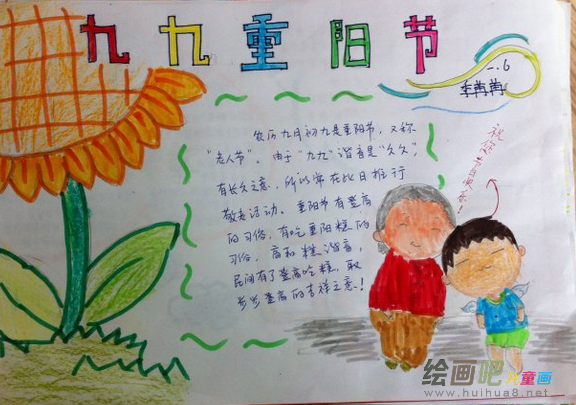 九九重阳节
一.6
农历九月初九是重阳节，又称
“老人节”。由于“九九”谐音是“久久”，
有长久之意，所以常在此日推行
敬老活动。重阳节有登高
的习俗，有吃重阳糕的
习俗，高和糕谐音，
民间有了登高吃糕，取
步步登高的吉祥之意！
祝您节日快乐！
绘画吧 儿童画
www.huihua8.net